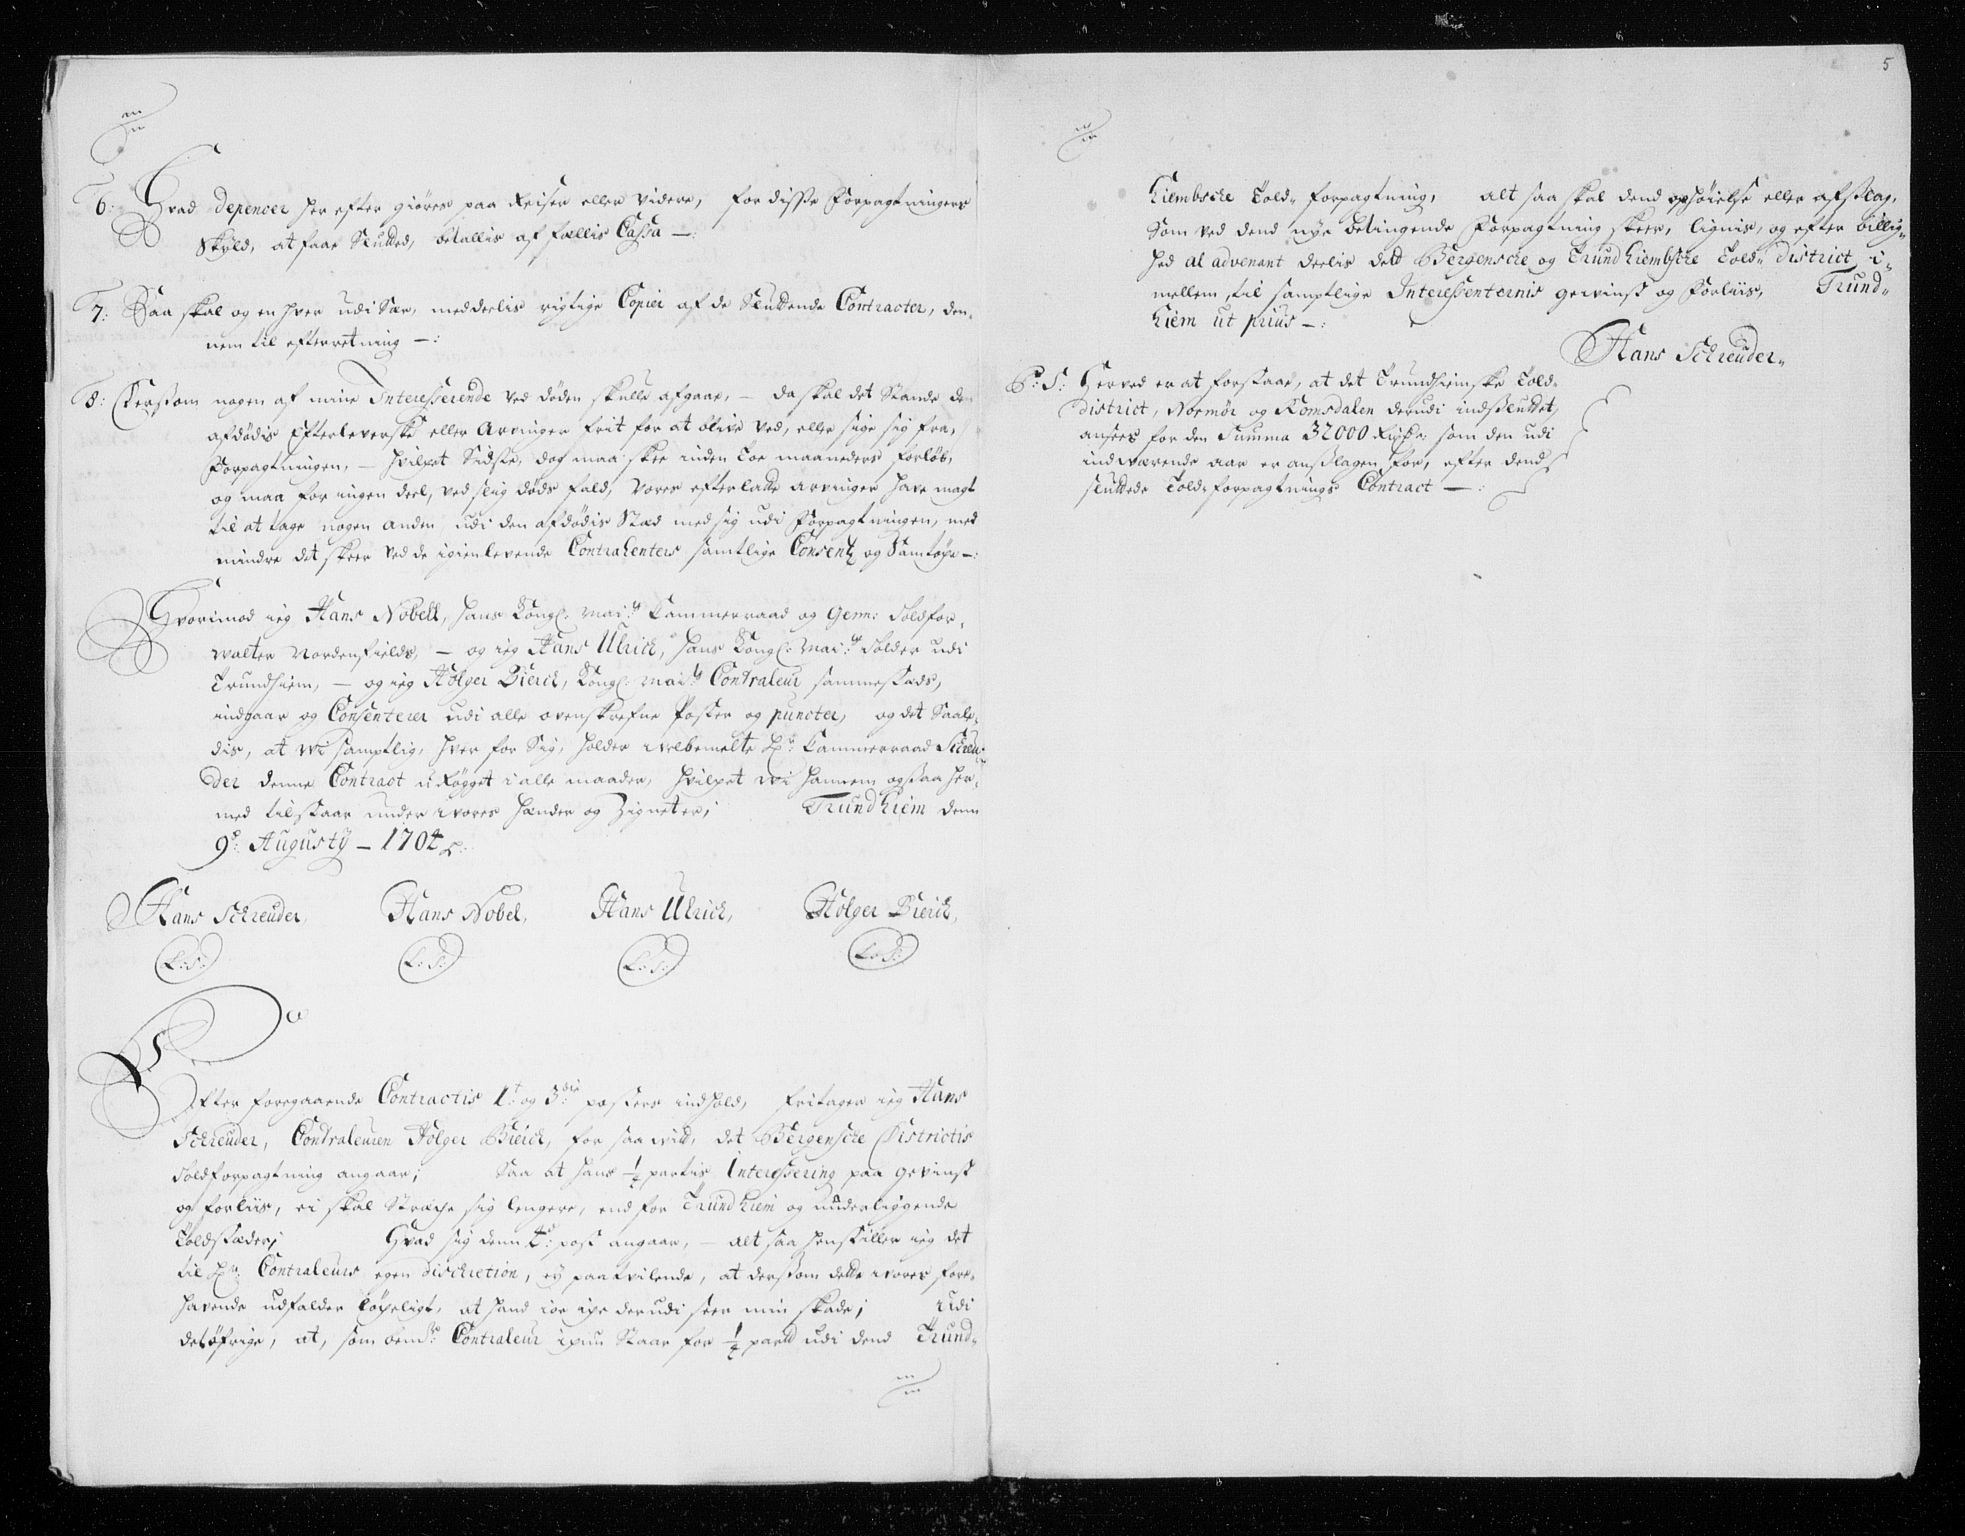 6: Hvad depencer her efter giøres paa Reiser eller videre, for disse Forpagtningers
skyld, at faae Slutted, betallis af fællis Cassa —:
7: Saa skal og en hver udi Sær, meddeelis rigtige Copier af de Sluttende Contracter, den-
nem til efterretning —:
8: Dersom nogen af mine Interesserende ved døden skulle afgaae, — da skal det Stande den
afdødis Efterleverske eller Arvinger frit for at blive ved, eller sige sig fra,
Forpagtningen, — hvilket Sidste, dog maa skee inden Toe maaneders forløb,
og maa for ingen deel, ved slig døds fald, Vores efterladte arvinger have magt
til at tage nogen anden udi den afdødis Stæd med sig udi Forpagtningen, med
mindre det skeer ved de igienlevende Contrahenters samtlige Consentz og Samtøche —:
Hvorimod ieg Hans Nobell, hans Kongl: Mai:ts Cammerraad og Genn: Toldfor-
walter Nordenfields, — og ieg Hans Ulrich, hans Kongl: Mai:ts Tolder udi
Trundhiem, — og ieg Holger Bierch, Kongl: Mai:ts Contraleur sammestæds,
indgaar og Consenterer udi alle ovenskrefne Poster og puncter, og det Saale-
dis, at wi samptlig, hver for Sig, holder welbemelte Hr: Cammerraad Schreu-
der denne Contract u-Røgget i alle maader, hvilket wi hannem ogsaa her-
med tilstaar under wores hænder og Zigneter; Trundhiem denn
9de: Augusty — 1704.
Hans Schreuder, Hans Nobel, Hans Ulrich, Holger Bierch,
L:S: L:S: L:S: L:S:
Efter foregaaende Contractis 1t: og 3die: posters indhold, fritager ieg Hans
Schreuder, Contraleuren Holger Bierch, for saa wiitt, det Bergensche Districtis
Toldforpagtning angaar; Saa at hans ¼ partis Interessering paa gevinst
og forliis, ei skal Strække sig lengere, end for Trundhiem og underliggende
Toldstæder; Hvad sig denn 4de: post angaar, — alt saa henstiller ieg det
til Hr: Contraleurs egen discretion, ey paatvilende, at dersom dette wores fore-
havende udfalder løcheligt, at hand ioe iche derudi seer min skade; Udi
det øfrige, at, som bem:te Contraleur ichun Staar for ¼ partt udi dend Trund-
5
hiembsche Told-forpagtning, alt saa skal dend ophøielse eller afslag,
Som ved dend nye betingende Forpagtning skeer, lignis, og efter billig-
hed al advenant deelis dett Bergensche og Trundhiembsche Told-district i-
mellem, til samptlige Interessenternis gewinst og Forliis, Trund-
hiem ut prius —:
Hans Schreuder.
P: S: Herved er at forstaae, at det Trundhiemske Told-
district, Normør og Romsdalen derudi indsluttet,
ansees for den Summa 32000 Rixd: som den udi
indwærende aar er anslagen for, efter dend
sluttede Told-forpagtnings Contract —: